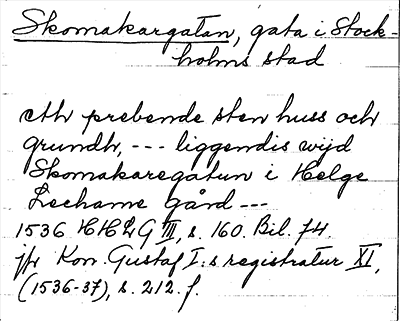 Skomakargatan, gata i Stock-
holms stad
eth prebende sten huss och
grundh, --- liggendis wijd
Skomakaregatun i Helge
Lechame gård ---
1536 HHLG III, s. 160. Bil. 74.
jfr Kon. Gustaf I:s registratur XI,
(1536-37), s. 212. f.